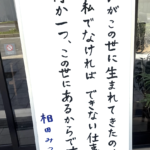 がこの世に生まれてきたの
私でなければ できない仕事
か一つ、この世にあるからで
相田みつ